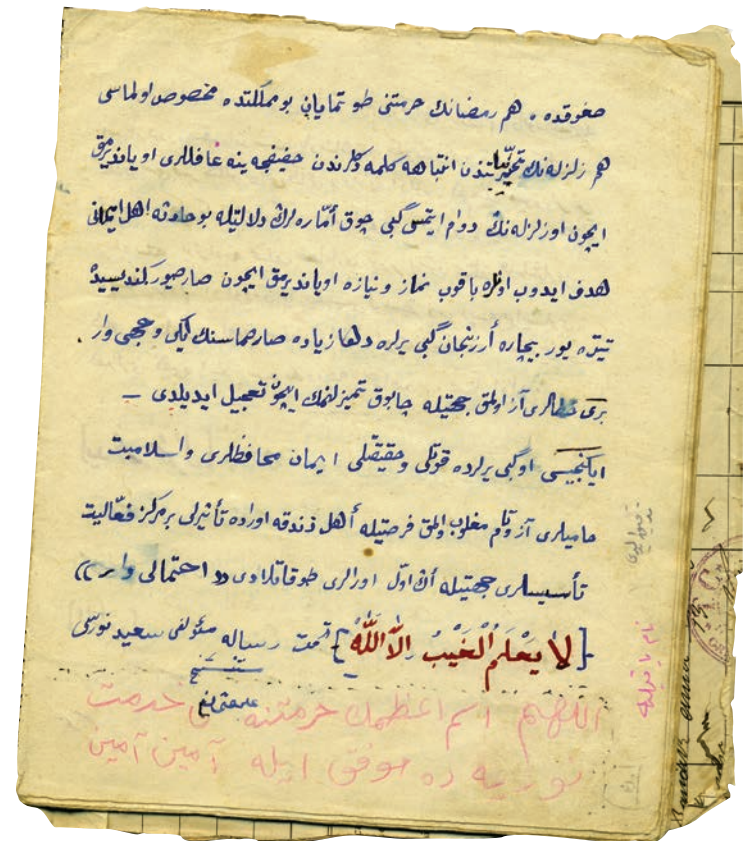 صغوقده . هم رمضانك حرمتنی طوتمایان بو مملكتده مخصوص اولماسی
هم زلزله‌نك تخریبتندن انتباهه كلمه‌دكلرندن خفیفجه ینه غافللری اویاندیرمق
ایچون او زلزله‌نك دوام ایتمسی گبی چوق أمّاره‌لرڭ دلالتیله بو حادثه اهل ایمانی
هدف ایدوب اونلره باقوب نماز و نیازه اویاندیرمق ایچون صارصیور كندیسیده
تیتره‌یور بیچاره أرزنجان گبی یرلره دها زیاده صارصماسنك ایكی وجهی وار .
بری خطالری آز اولمق جهتیله چابوق تمیزلنمك ایچون تعجیل ایدیلدی –
ایكنجیسی اوگبی یرلرده قوتلی و حقیقتلی ایمان محافظلری و اسلامیت
حامیلری آز و تام مغلوب اولمق فرصتیله أهل زندقه اوراده تأثیرلی بر مركز فعّالیت
تأسیسلری جهتیله أڭ اوّل اورالری طوقاتلادی (( احتمالی وار ))
[ لَا يَعْلَمُ الْغَيْبَ اِلَّا اللّٰهُ ] تمت رساله مؤلفی سعید نورسی
اللهم اسم اعظمك حرمتنه خدمت
نوریه ده موفق ایله آمین آمین